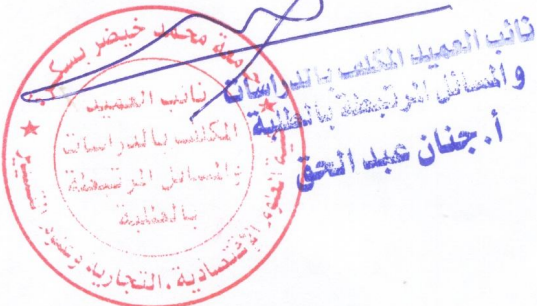 جامعة محمد خيضر بسكرة
نائب العميد
المكلف بالدراسات
والمسائل المرتبطة
بالطلبة
العلوم الإقتصادية، التجارية وعلوم التسيير
نائب العميد المكلف بالدراسات
و المسائل المرتبطة بالطلبة
أ. جنان عبد الحق